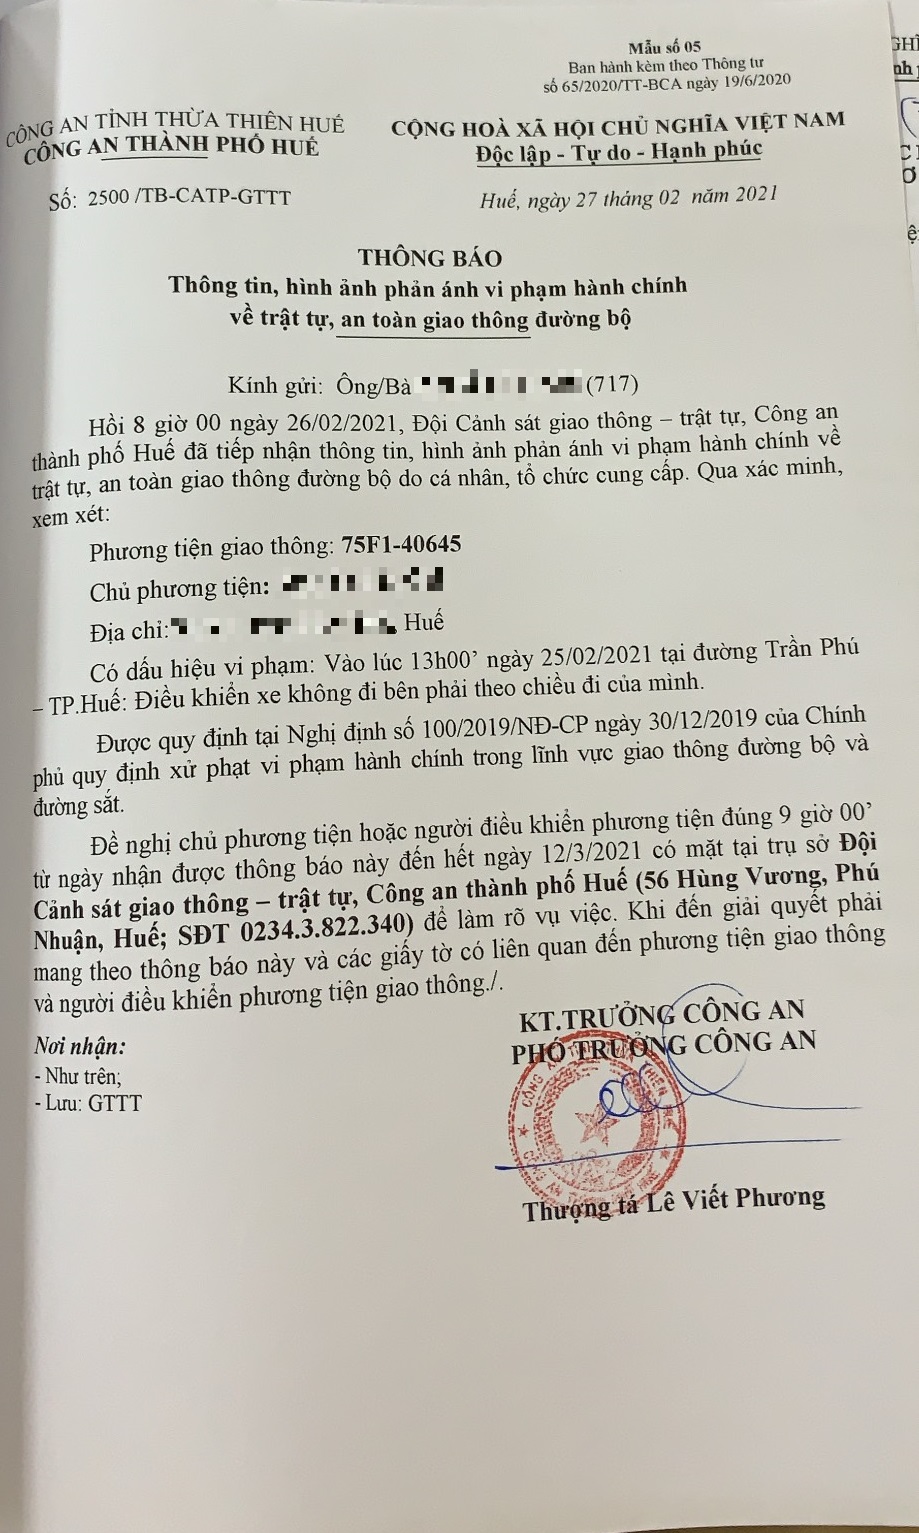 Mẫu số 05
Ban hành kèm theo Thông tư
số 65/2020/TT-BCA ngày 19/6/2020
CÔNG AN TỈNH THỪA THIÊN HUẾ
CÔNG AN THÀNH PHỐ HUẾ
CỘNG HOÀ XÃ HỘI CHỦ NGHĨA VIỆT NAM
Độc lập - Tự do - Hạnh phúc
Số: 2500 /TB-CATP-GTTT
Huế, ngày 27 tháng 02 năm 2021
THÔNG BÁO
Thông tin, hình ảnh phản ánh vi phạm hành chính
về trật tự, an toàn giao thông đường bộ
Kính gửi: Ông/Bà (717)
Hồi 8 giờ 00 ngày 26/02/2021, Đội Cảnh sát giao thông – trật tự, Công an
thành phố Huế đã tiếp nhận thông tin, hình ảnh phản ánh vi phạm hành chính về
trật tự, an toàn giao thông đường bộ do cá nhân, tổ chức cung cấp. Qua xác minh,
xem xét:
Phương tiện giao thông: 75F1-40645
Chủ phương tiện:
Địa chỉ: , Huế
Có dấu hiệu vi phạm: Vào lúc 13h00’ ngày 25/02/2021 tại đường Trần Phú
– TP.Huế: Điều khiển xe không đi bên phải theo chiều đi của mình.
Được quy định tại Nghị định số 100/2019/NĐ-CP ngày 30/12/2019 của Chính
phủ quy định xử phạt vi phạm hành chính trong lĩnh vực giao thông đường bộ và
đường sắt.
Đề nghị chủ phương tiện hoặc người điều khiển phương tiện đúng 9 giờ 00’
từ ngày nhận được thông báo này đến hết ngày 12/3/2021 có mặt tại trụ sở Đội
Cảnh sát giao thông – trật tự, Công an thành phố Huế (56 Hùng Vương, Phú
Nhuận, Huế; SĐT 0234.3.822.340) để làm rõ vụ việc. Khi đến giải quyết phải
mang theo thông báo này và các giấy tờ có liên quan đến phương tiện giao thông
và người điều khiển phương tiện giao thông./.
KT.TRƯỞNG CÔNG AN
PHÓ TRƯỞNG CÔNG AN
Nơi nhận:
- Như trên;
- Lưu: GTTT
Thượng tá Lê Viết Phương